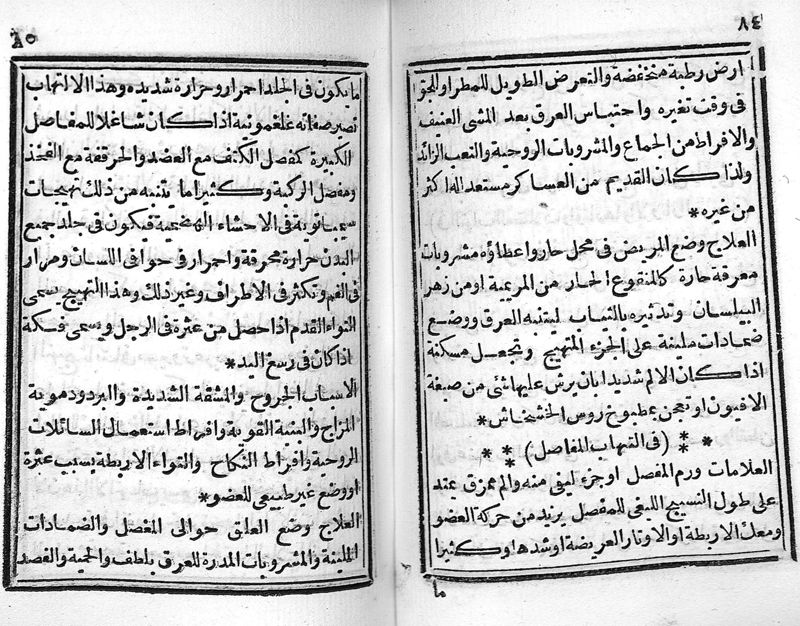 ٨٤
ارض رطبة منخفضة والتعرض الطويل للمطر او الجو
فى وقت تغيره واحتباس العرق بعد المشى العنيف
والافراط من الجماع والمشروبات الروحية والتعب الزائد
ولذا كان القديم من العساكر مستعدا له اكثر
من غيره *
العلاج وضع المريض فى محل حار واعطاؤه مشروبات
معرقة حارة كالمنقوع الحار من المريمية او من زهر
البيلسان وتدثيره بالثياب لينتبه العرق ووضع
ضمادات ملينة على الجزء المتهيج وتجعل مسكنة
اذا كان الالم شديدا بان يرش عليها شئ من صبغة
الافيون او تعجن بمطبوخ روس الخشخاش *
* * * (فى التهاب المفاصل) * * *
العلامات ورم المفصل او جزء ليفى منه والم ممزق يمتد
على طول النسيج الليفى للمفصل يزيد من حركة العضو
ومعك الاربطة او الاوتار العريضة او شدها وكثيرا
ما
٨٥
ما يكون فى الجلد احمرار وحرارة شديده وهذا الالتهاب
تصير صفاته غلغمونية اذا كان شاغلا للمفاصل
الكبيرة كمفصل الكتف مع العضد والحرقفة مع الفخذ
ومفصل الركبة وكثيرا ما يتنبه من ذلك تهيجات
سيمپاتوية فى الاحشاء الهضمية فيكون فى جلد جميع
البدن حرارة محرقة واحمرار فى حوافى اللسان ومرار
فى الفم وتكثر فى الاطراف وغير ذلك وهذا التهيج يسمى
التواء القدم اذا حصل من عثرة فى الرجل ويسمى فسكة
اذا كان فى رسغ اليد *
الاسباب الجروح والمشقة الشديدة والبرد ودموية
المزاج والبنية القوية وافراط استعمال السائلات
الروحية وافراط النكاح والتواء الاربطة بسبب عثرة
او وضع غير طبيعى للعضو *
العلاج وضع العلق حوالى المفصل والضمادات
الملينة والمشروبات المدرة للعرق بلطف والحمية والفصد